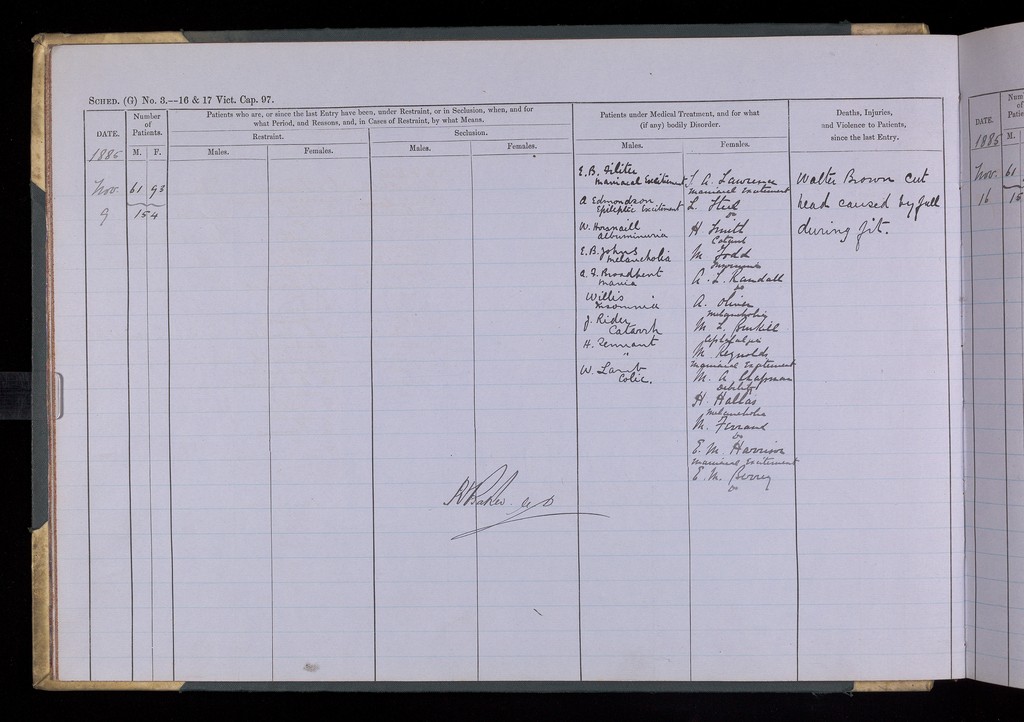 SCHED. (G) No. 3.—16 & 17 Vict. Cap. 97.
DATE.
Number
of
Patients.
M. F.
Patients who are, or since the last Entry have been, under Restraint, or in Seclusion, when, and for
what Period, and Reasons, and, in Cases of Restraint, by what Means.
Restraint.
Seclusion.
Males.
Females.
Males.
Females.
Patients under Medical Treatment, and for what
(if any) bodily Disorder.
Males.
Females.
Deaths, Injuries,
and Violence to Patients,
since the last Entry.
1885
Nov.
9
61 93
154
E. B.
Maniacal Excitement
A Edmondson
Epileptic Excitement
W. Horsnaill
Albuminuria
E. B. Johns
Melancholia
A. J. Broadbent
Mania
Willis
Insomnia
J. Rider
Catarrh
H. Tennant
"
W. Lamb
Colic.
A. Lawrence
Maniacal Excitement
L. Steel
Do
H Smith
Catarrh
M Todd
A. L. Randall
Do
A. Oliver
Melancholia
M. L.
M. Reynolds
Maniacal Excitement
M. A Chapman
Debility
H. Hallas
Melancholia
M. Ferrand
Do
E. M. Harrison
Maniacal Excitement
E. M. Berry
Do
Walter Brown cut
head caused by fall
during fit.
R Baker MD
DATE.
1885
Nov.
16
61